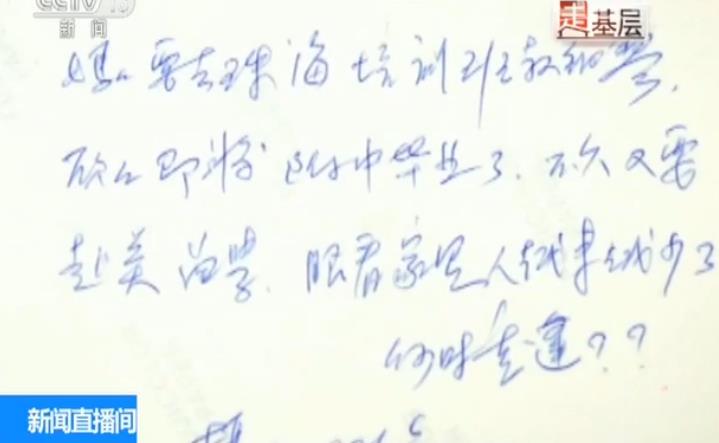 CCTV 13
新闻
走基层
妈妈要去珠海培训班教钢琴,
欣欣即将附中毕业了.不久又要
赴美留学.眼看家里人越来越少了
何时重逢??
新闻直播间